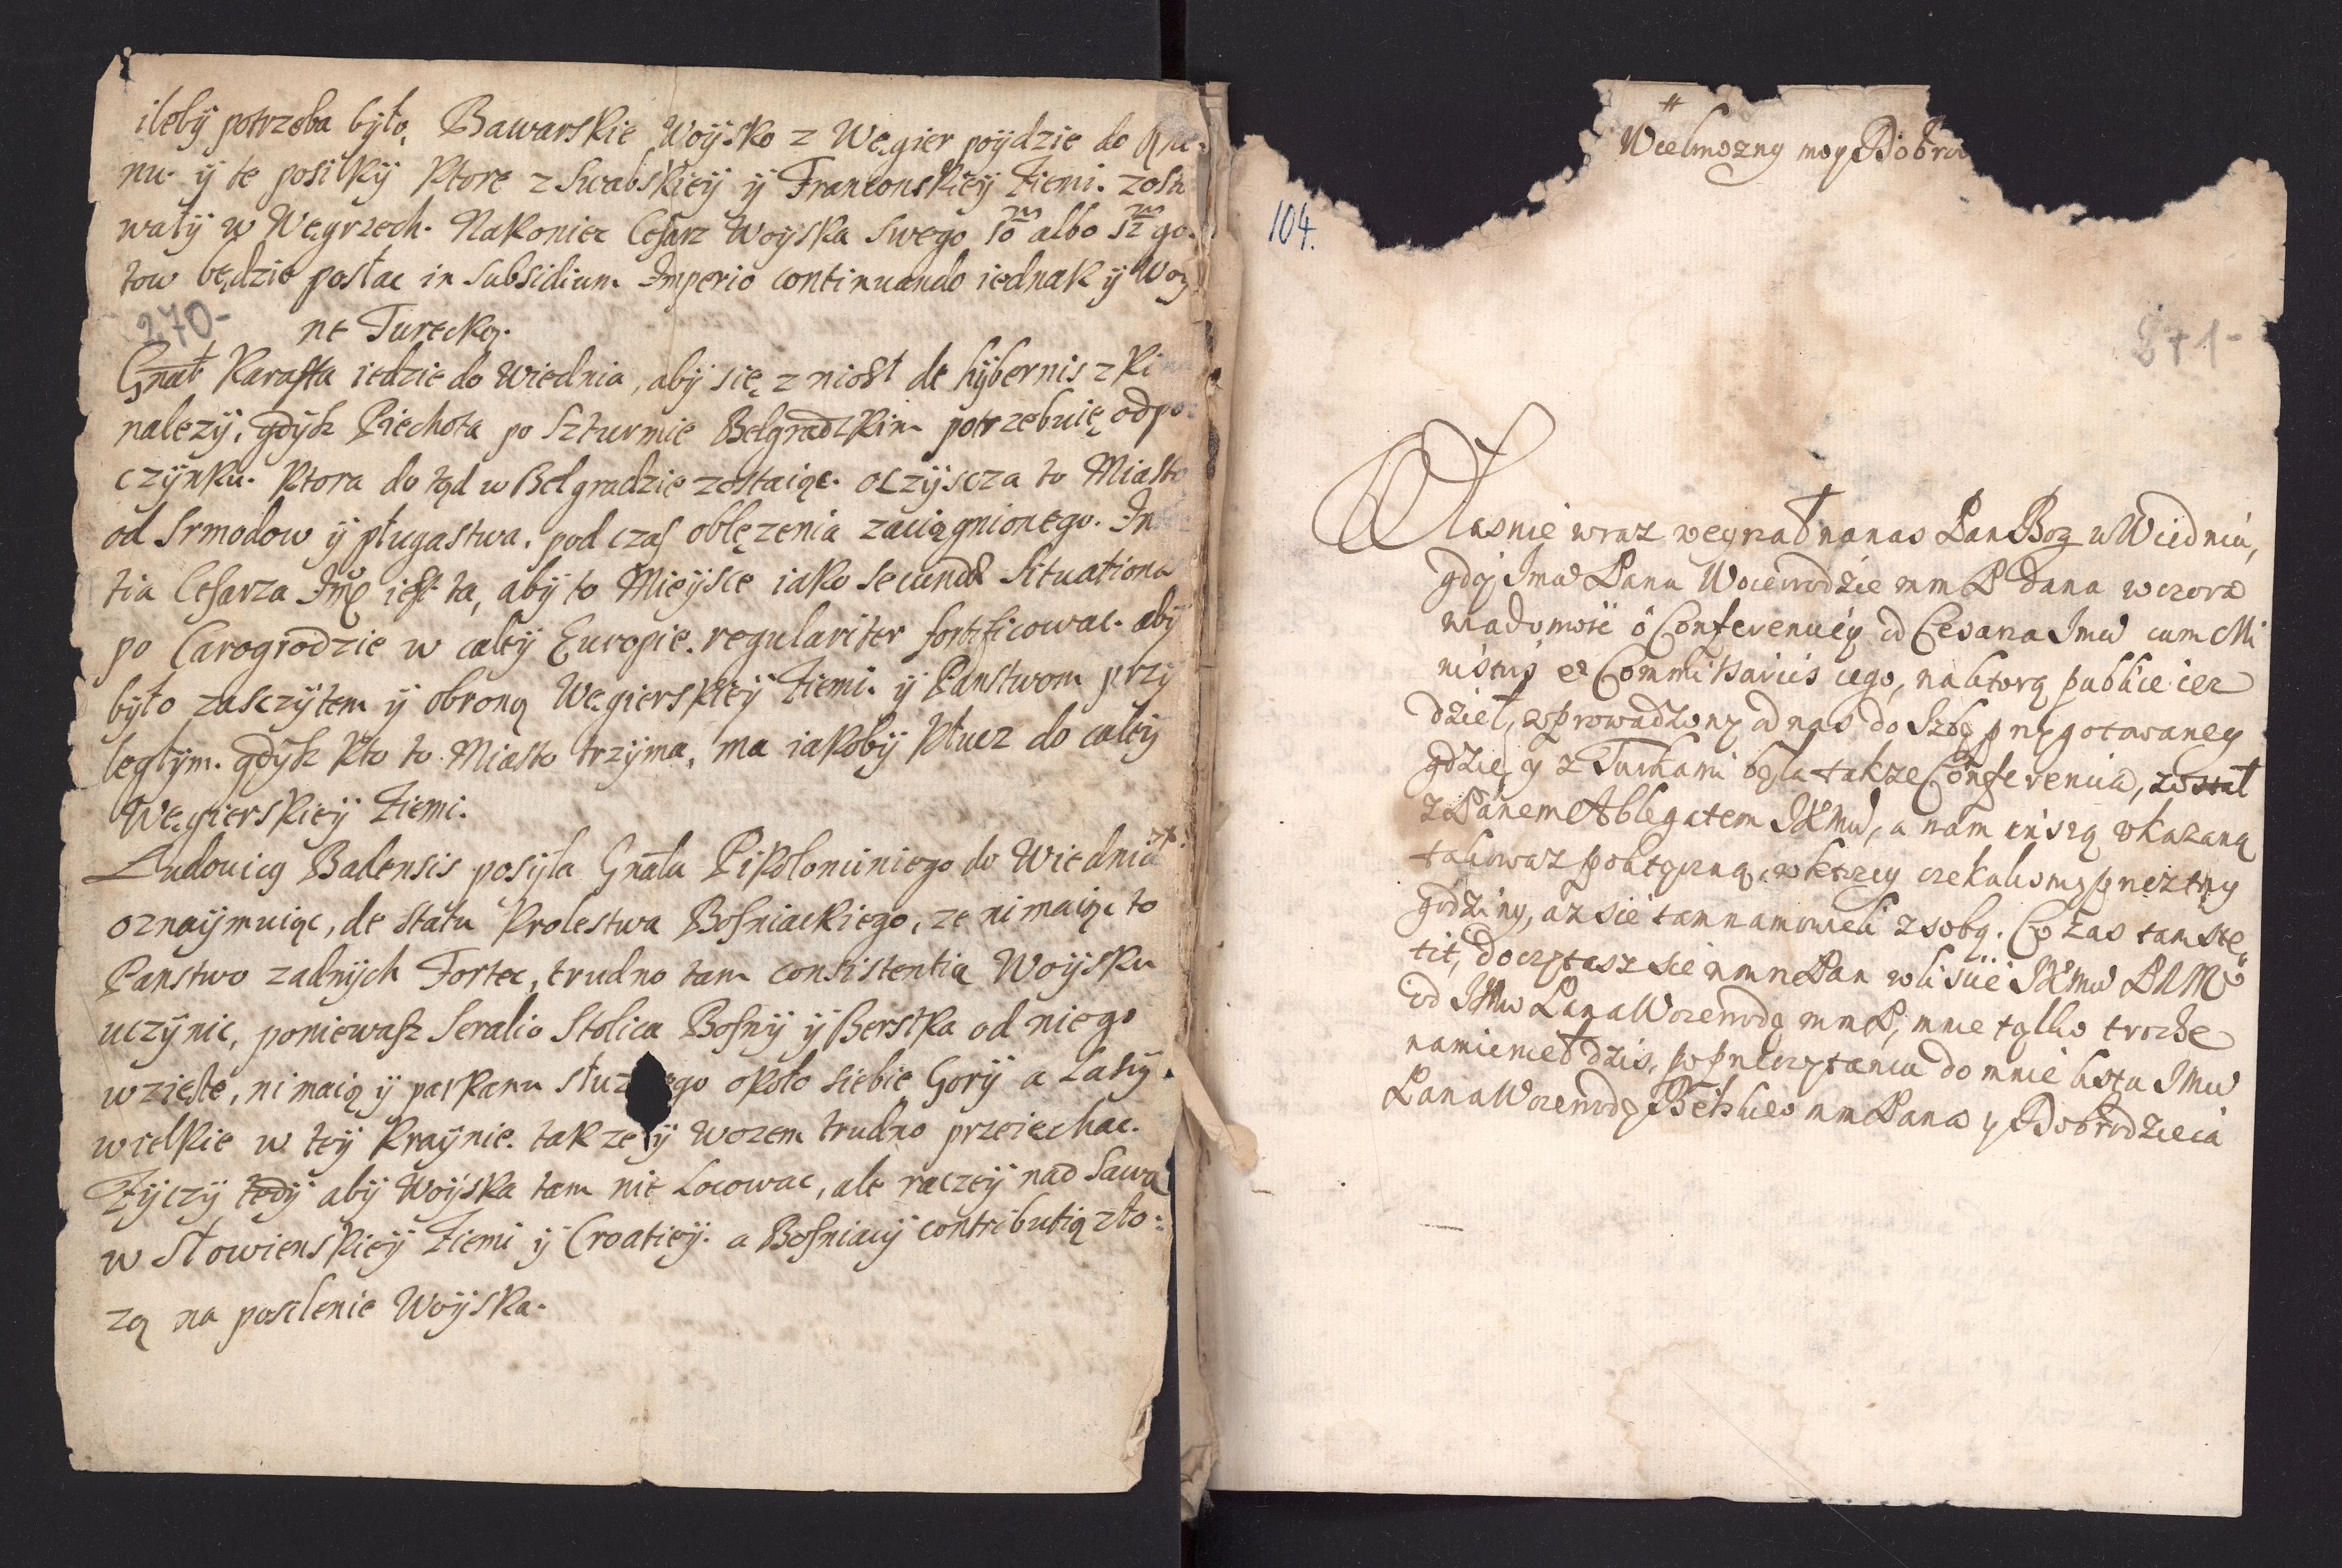 ileby potrzeba było, Bawarskie Woysko z Węgier poydzie do
nu y te posilky ktore z Swabskiey y Franconskiey Ziemi zosta
wały w Węgrzech. Nakoniec Cesarz Woyska swego 10 albo 12 go.
tow będzie posłac in Subsidium Imperio continuando iednak y Woy
270- nę Turecką.
Gnał Karaffa iedzie do Wiednia, aby się zniost de hybernis z
nalezy, gdysz Piechota po Szturmie Belgradzkim potrzebuię odpo:
czynku. Ktora do tąd w Belgradzie zostaiąc oczyscza to Miasto
od Srmodow y plugastwa, pod czas oblęzenia zaciągnionego. In
tia Cesarza Jmę iest ta, aby to Mieysce iako secunda Situationa
po Carogrodzie w całey Europie regulariter fortificowac. aby
było zasczytem y obroną Węgierskiey Ziemi y Panstwom przy
ległym. gdysz kto to Miasto trzyma, ma iakoby klucz do całey
Węgierskiey Ziemi.
Ludovicg Badensis posyła Gnała Pikolominiego do Wiednia
oznaymuiąc, de statu Krolestwa Bosniackiego, ze ni maiąc to
Panstwo zadnych Fortec, trudno tam consistentią Woysku
uczynic, poniewasz Seralio Stolica Bosny y Berska od niego
wzięte, ni maią y parkanu słuz ego około siebie Gory a Lasy
wielkie w tey Kraynie. tak ze y wozem trudno przeiechac.
Zyczy tedy aby Woyska tam nie Locowac, ale raczey nad Sawą
w Słowienskiey Ziemi y Croatiey. a Bosniacy contributią zło:
zą na posilenie Woyska.
Wielmozny moy Dobro
104.
271-
Własnie wraz weyrzał na nas Pan Bog w Wiedniu,
gdy Jmći Panu Woiewodzie mm P dana wczora
wiadomość o Conferencyey od Cesarza Jmći cum Mi
nistris et Commissariis iego, na ktorą publice iez
dzieł, zaprowadzony od nas do Izby przygotowaney
gdzie y z Turkami była takze Conferencia, został
z Panem Ablegatem JKMći, a nam inszą wkazaną
takowaz poboczną, w ktorey czekalismy przez try
godziny, az sie tam namowieli z sobą. Co zas tam ste
tit, doczytasz sie mm Pan w liscie JKMći PNM
od JMći Pana Woiewody mm P, mnie tylko troche
namieniel dzis, po przeczytaniu do mnie listu JMći
Pana Woiewody mm Pana y Dobrodzieia